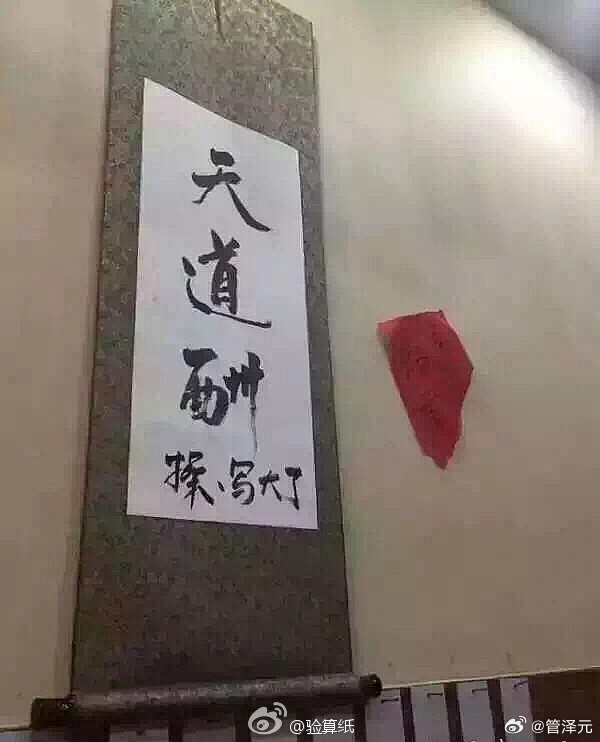 天道酬
操、写大了
@验算纸
@管泽元